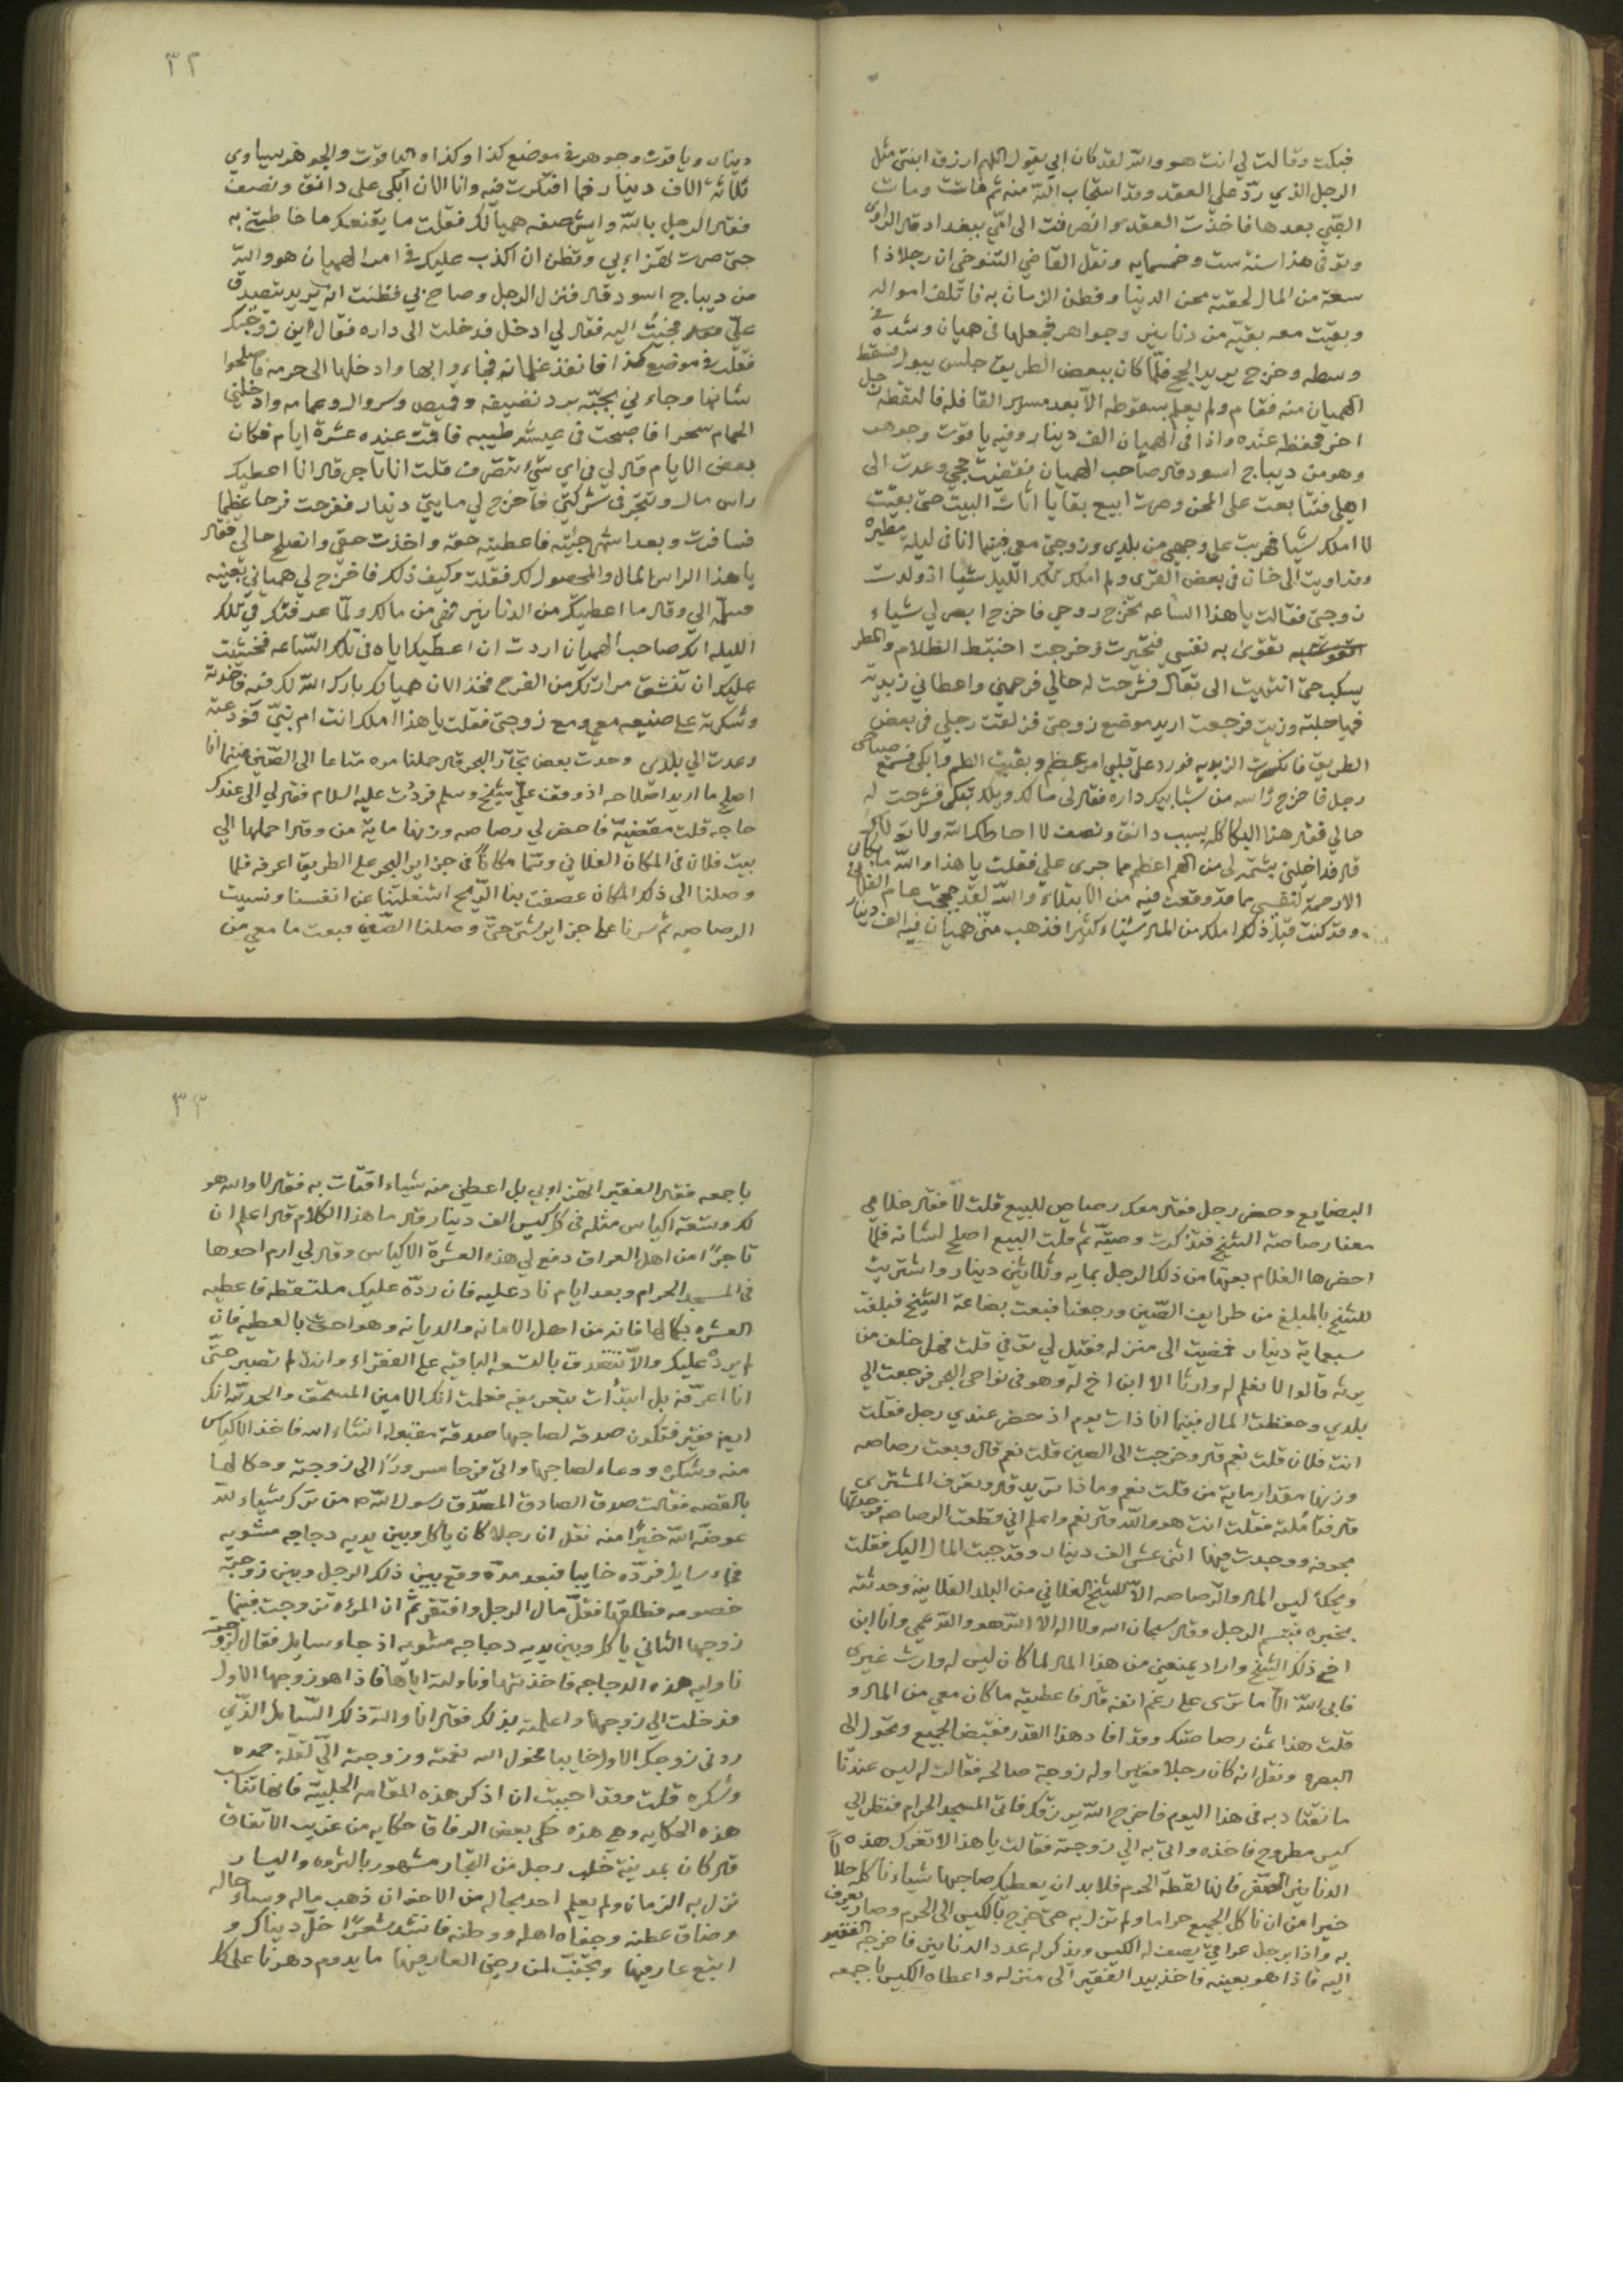 فبكت وقالت لي انت هو والله لقد كان ابي يقول اللهم ارزق ابنتي مثل
الرجل الذي ردّ علي العقد وقد استجاب الله منه ثم ماتت ومات
الصّبي بعدها فاخذت العقد وانصرفت الى امّي ببغداد قال الراوي
وتوفي هذا سنة ست وخمسمايه ونقل القاضي التنوخي ان رجلا ذا
سعة من المال لحقته محن الدنيا وفطن الزمان به فاتلف امواله
وبقيت معه بقيّه من دنانير وجواهر فجعلها في هميان وشده في
وسطه وخرج يريد الحج فلمّا كان ببعض الطريق جلس يبول فسقط
الهميان منه فقام ولم يعلم بسقوطه الاّ بعد مسير القافله فالتقطه رجل
اخر فحفظه عنده واذا في الهميان الف دينار وفيه ياقوت وجوهر
وهو من ديباج اسود قال صاحب الهميان فقضيت حجي وعدت الى
اهلي فتتابعت على المحن وصرت ابيع بقايا اثاث البيت حتى بقيت
لا املك شيا فهربت على وجهي من بلدي وزوجتي معي فبينما انا في ليله مطيره
وقد اويت الى خان في بعض القرى ولم املك تلك الليله شيا اذ ولدت
زوجتي فقالت يا هذا الساعه تخرج روحي فاخرج ابصر لي شياء
تقوى به نفسي فتحيرت وخرجت اختبط الظلام والمطر
يسكب حتى انتهيت الى بقال فشرحت له حالي فرحمني واعطاني زبديه
فيها حلبه وزيت فرجعت اريد موضع زوجتي فزلقت رجلي في بعض
الطريق فانكسرت الزبديه فورد على قلبي امر عظيم وبقيت الطم وابكي فسمع صياحي
رجل فاخرج راسه من شبابيك داره فقال لي مالك ويلك تبكي فشرحت له
حالي فقال هذا البكا كله بسبب دانق ونصف لا احاطك الله ولا تولاك
قال فداخلني بشتمه لي من الهم اعظم مما جرى علي فقلت يا هذا والله ما بكائي
الا رحمة لنفسي مما قد وقعت فيه من الابتلاء والله لقد حججت عام الفلاني
وقد كنت قبل ذلك املك من المال شياء كثيرا فذهب منّي هميان فيه الف دينار
٣٢
دينار وياقوت وجوهر في موضع كذا وكذا والياقوت والجوهر يساوي
ثلاثة الاف دينار فما افتكرت فيه وانا الان ابكي على دانق ونصف
فقال الرجل بالله وايش صفه هميانك فقلت ما يقنعك ما خاطبتني به
حتى صرت تهزا بي وتظن ان اكذب عليك في امر الهميان هو والله
من ديباج اسود قال فنزل الرجل وصاح بي فظننت انه يريد يتصدق
عليّ فجئت اليه فقال لي ادخل فدخلت الى داره فقال اين زوجتك
فقلت في موضع كذا فانفذ غلمانه فجاءوا بها وادخلها الى حرمه فاصلحوا
شانها وجاءني بجبّه برد نضيفه وقميص وسروال وعمامه وادخلني
الحمام سحرا فاصبحت في عيشه طيبه فاقمت عنده عشرة ايام فكان
بعض الايام قال لي في اي شيء تتصرف قلت انا تاجر قال انا اعطيك
راس مال وتتجر في شركتي فاخرج لي مايتي دينار ففرحت فرحا عظيما
فسافرت وبعد اشهر جئته فاعطيته حقه واخذت حقي وانصلح حالي فقال
يا هذا الراس المال والمحصول لك فقلت وكيف ذلك فاخرج لي همياني بعينه
فسلمه الي وقال ما اعطيتك من الدنانير فهي من مالك ولمّا عرفتك في تلك
الليله انك صاحب الهميان اردت ان اعطيك اياه في تلك الساعه فخشيت
عليك ان تنشق مرارتك من الفرح فخذ الان هميانك بارك الله لك فيه فاخذته
وشكرته على صنيعه معي ومع زوجتي فقلت يا هذا املك انت ام نبيّ فودعته
وعدت الي بلدي وحدث بعض تجار البحر قال حملنا مره متاعا الى الصّين فبينما انا
اصلح ما اريد اصلاحه اذ وقف عليّ شيخ وسلم فرددت عليه السلام فقال لي الى عندك
حاجه قلت مقضيّه فاحضر لي رصاصه وزنها ماية من وقال احملها الي
بيت فلان في المكان الفلاني وسمّا مكانا في جزاير البحر على الطريق اعرفه فلما
وصلنا الى ذلك المكان عصفت بنا الريح اشغلتنا عن انفسنا ونسيت
الرصاصه ثم سرنا على جزاير شتى حتّى وصلنا الصّين فبعت ما معي من
البضايع وحضر رجل فقال معك رصاص للبيع قلت لا فقال غلامي
معنا رصاصة الشيخ فتذكرت وصيّته ثم قلت البيع اصلح لشانه فلمّا
احضرها الغلام بعتها من ذلك الرجل بمايه وثلاثين دينار واشتريت
للشيخ بالمبلغ من طرايف الصّين ورجعنا فبعت بضاعة الشيخ فبلغت
سبعماية دينار فمضيت الى منزله فقيل لي توفي قلت فهل خلف من
يرثه قالوا لا نعلم له وارثا الا ابن اخ له وهو في نواحي البحر فرجعت الي
بلدي وحفظت المال فبينما انا ذات يوم اذ حضر عندي رجل فقلت
انت فلان قلت نعم قال وخرجت الى الصين قلت نعم قال وبعت رصاصه
وزنها مقدار ماية من قلت نعم وماذا تريد قال وتعرف المشتري
قال فتاملته فقلت انت هو والله قال نعم واعلم اني قطعت الرصاصه فوجدتها
مجوفه ووجدت فيها اثنى عشر الف دينار وقد جبت المال اليك فقلت
ويحك ليس المال والرصاصه الاّ للشيخ الفلاني من البلد الفلانيه وحدثته
بخبره فتبسم الرجل وقال سبحان الله ولا اله الا الله هو والله عمي وانا ابن
اخ ذلك الشيخ واراد يمنعني من هذا المال لما كان ليس له وارث غيري
فابى الله الا ما ترى على رغم انفه قال فاعطيته ما كان معي من المال و
قلت هذا ثمن رصاصتك وقد افاد هذا القدر فقبض الجميع وتحول الى
البصره ونقل انه كان رجلا فقيرا وله زوجة صالحه فقالت له ليس عندنا
ما نقتاد به في هذا اليوم فاخرج الله يرزقك فاتى المسجد الحرام فنظر الي
كيس مطروح فاخذه واتى به الي زوجته فقالت يا هذا لا تغرك هذه
الدنانير الصّفر فانها لقطة الحرم فلا بد ان يعطيك صاحبها شياء ناكله حلالاً
خيرا من ان ناكل الجميع حراما ولم تزل به حتى خرج بالكيس الى الحرم وصار يعرف
به واذا برجل عراقيّ يصف له الكيس ويذكر له عدد الدنانير فاخرجه الفقير
اليه فاذا هو بعينه فاخذ بيد الفقير الى منزله واعطاه الكيس باجمعه
٣٣
باجمعه فقال الفقير اتهزاوبي بل اعطني منه شياء اقتات به فقال لا والله هو
لك وتسعة اكياس مثله في كل كيس الف دينار قال ما هذا الكلام قال اعلم ان
تاجرًا من اهل العراق دفع لي هذه العشرة الاكياس وقال لي ارم احدها
في المسجد الحرام وبعد ايام ناد عليه فان ردّه عليك ملتقطه فاعطيه
العشره بكمالها فانه من اهل الامانه والديانه وهو احق بالعطيه فان
لم يرده عليك والا تتصدق بالتسعه الباقيه على الفقراء وانك لم تصبر حتّى
انا اعرّفه بل ابتدأت بتعريفه فعلمت انك الامين المستحق والحمد لله انك
ايضا فقير فتكون صدقه لصاحبها صدقة مقبوله انشاء الله فاخذ الاكياس
منه وشكره ودعاء لصاحبها واتى فرحا مسرورًا الى زوجته وحكا لها
بالقصه فقالت صدق الصادق المصدّق رسول الله ص من ترك شياء لله
عوضه الله خيرًا منه نقل ان رجلا كان ياكل وبين يديه دجاجه مشويه
فجاء سايل فردّه خايبا فبعد مدّه وقع بين ذلك الرجل وبين زوجته
خصومه فطلقها فقلّ مال الرجل وافتقر ثمّ ان المرءه تزوجت فبينما
زوجها الثاني ياكل وبين يديه دجاجه مشويه اذ جاء سايل فقال لزوجته
ناوليه هذه الدجاجه فاخذتها وناولته اياها فاذا هو زوجها الاول
فدخلت الي زوجها واعلمته بذلك فقال انا والله ذلك السّايل الذّي
ردني زوجك الاول خايبا فحول الله نعمته وزوجته اليّ لقلّة حمده
وشكره قلت وقد احببت ان اذكر هذه المقامه الحلبيّة فانها تناسب
هذه الحكايه وهي هذه حكى بعض الرفاقا حكايه من غريب الاتفاق
قال كان بمدينة حلب رجل من التجار مشهور بالثروه واليسار
نزل به الزمان ولم يعلم احد بحاله من الاخوان ذهب ماله وساء حاله
وضاق عطنه وجفاه اهله ووطنه فانشد شعرًا خلّ ديناك و
ابتع عاريها وتجنّب لمن رضى العاريها ما يدوم دهرنا على كل